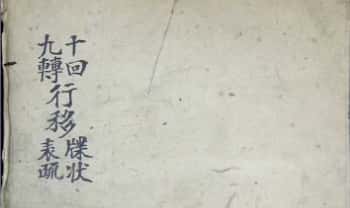 十回
九轉
行移
牒状
表疏